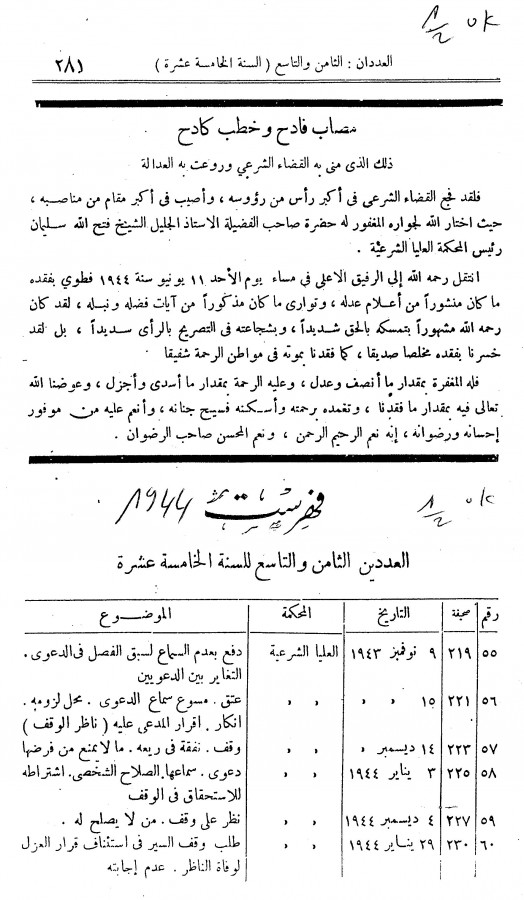 ٨/٢ ok
العددان : الثامن والتاسع ( السنة الخامسة عشرة )
٢٨١
مصاب فادح وخطب كادح
ذلك الذى منى به القضاء الشرعي وروعت به العدالة
فلقد فجع القضاء الشرعى فى أكبر رأس من رؤوسه ، وأصيب فى أكبر مقام من مناصبه ،
حيث اختار الله لجواره المغفور له حضرة صاحب الفضيلة الاستاذ الجليل الشيخ فتح الله سليمان
رئيس المحكمة العليا الشرعية .
انتقل رحمه الله إلى الرفيق الاعلى فى مساء يوم الأحد ١١ يونيو سنة ١٩٤٤ فطوي بفقده
ما كان منشوراً من أعلام عدله ، وتوارى ما كان مذكوراً من آيات فضله ونبله ، لقد كان
رحمه الله مشهوراً بتمسكه بالحق شديداً ، وبشجاعته فى التصريح بالرأى سديداً ، بل لقد
خسرنا بفقده مخلصا صديقا ، كما فقدنا بموته فى مواطن الرحمة شفيقا
فله المغفرة بمقدار ما أنصف وعدل ، وعليه الرحمة بمقدار ما أسدى وأجزل ، وعوضنا الله
تعالى فيه بمقدار ما فقدنا ، وتغمده برحمته وأسكنه فسيح جنانه ، وأنعم عليه من موفور
إحسانه ورضوانه ، إنه نعم الرحيم الرحمن ، ونعم المحسن صاحب الرضوان .
٨/٢ ok
فهرست
1944
العددين الثامن والتاسع للسنة الخامسة عشرة
رقم صحيفة التاريخ المحكمة الموضوع
٥٥ ٢١٩ ٩ نوفمبر ١٩٤٣ العليا الشرعية دفع بعدم السماع لسبق الفصل فى الدعوى .
التغاير بين الدعويين
٥٦ ٢٢١ ١٥ » » » » عتق . مسوغ سماع الدعوى . محل لزومه .
انكار . اقرار المدعى عليه ( ناظر الوقف )
٥٧ ٢٢٣ ١٤ ديسمبر » » » وقف . نفقة فى ريعه . ما لا يمنع من فرضها
٥٨ ٢٢٥ ٣ يناير ١٩٤٤ » » دعوى . سماعها . الصلاح الشخصى . اشتراطه
للاستحقاق فى الوقف
٥٩ ٢٢٧ ٤ ديسمبر ١٩٤٤ » » نظر على وقف . من لا يصلح له .
٦٠ ٢٣٠ ٢٩ يناير ١٩٤٤ » » طلب وقف السير فى استئناف قرار العزل
لوفاة الناظر . عدم إجابته